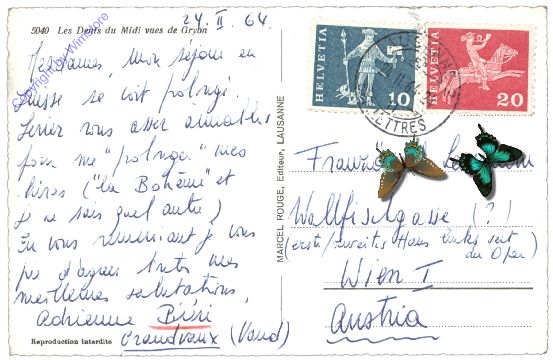 24. II. 64.
5040 Les Dents du Midi vues de Gryon
Copyright by Winstore
Mesdames, Mon séjour en
Suisse se voit prolongé.
Seriez vous assez aimables
pour me "prolonger" mes
livres ("la Bohême" et
je ne sais quel autre)
En vous remerciant je vous
pri d'agréer toutes mes
meilleures salutations,
Adrienne Biéri
Grandvaux (Vaud)
Reproduction interdite
MARCEL ROUGE, Editeur, LAUSANNE
HELVETIA
10
HELVETIA
20
LETTRES
Wallfischgasse (?)
(erste/zweites Haus links seit
der Oper)
Wien I
Austria